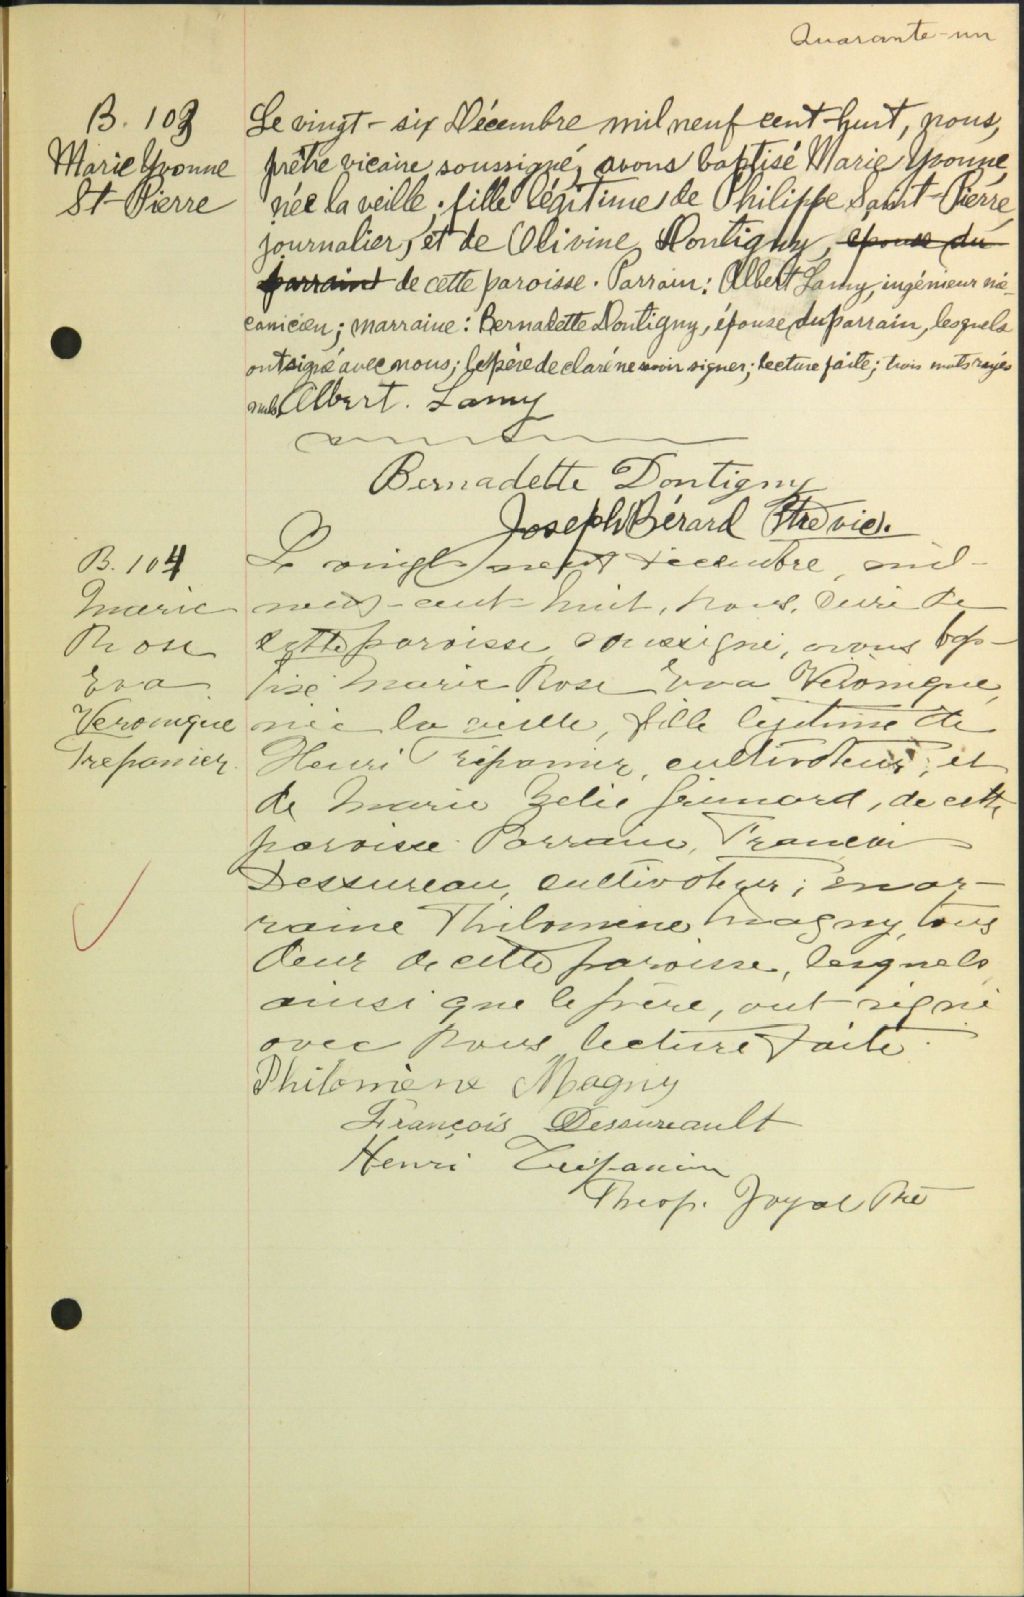 Quarante-un
B. 103
Marie Yvonne
St-Pierre
Le vingt-six Décembre mil neuf cent-huit, nous,
prêtre vicaire soussigné, avons baptisé Marie Yvonne,
née la veille, fille légitime de Philippe Saint-Pierre,
journalier, et de Olivine Dontigny, épouse du
parrain de cette paroisse. Parrain: Albert Lamy, ingénieur mé-
canicien; marraine: Bernadette Dontigny, épouse du parrain, lesquels
ont signé avec nous; le père déclaré ne savoir signer; lecture faite; trois mots rayés
nuls. Albert. Lamy
Bernadette Dontigny
Joseph Bérard Ptre vic.
B. 104
Marie
Rose
Eva
Veronique
Trepanier
Le vingt neuf décembre, mil-
neuf-cent-huit, nous, curé de
cette paroisse, soussigné, avons bap-
tisé Marie Rose Eva Véronique,
née la veille, fille légitime de
Henri Trépanier, cultivateur, et
de Marie Zelie Grimard, de cette
paroisse. Parrain, Francois
Dessureau, cultivateur; mar-
raine Philomène Magny, tous
deux de cette paroisse, lesquels,
ainsi que le père, ont signé
avec nous, lecture faite.
Philomène Magny
François Dessureault
Henri Trépanier
Theop. Joyal Ptre